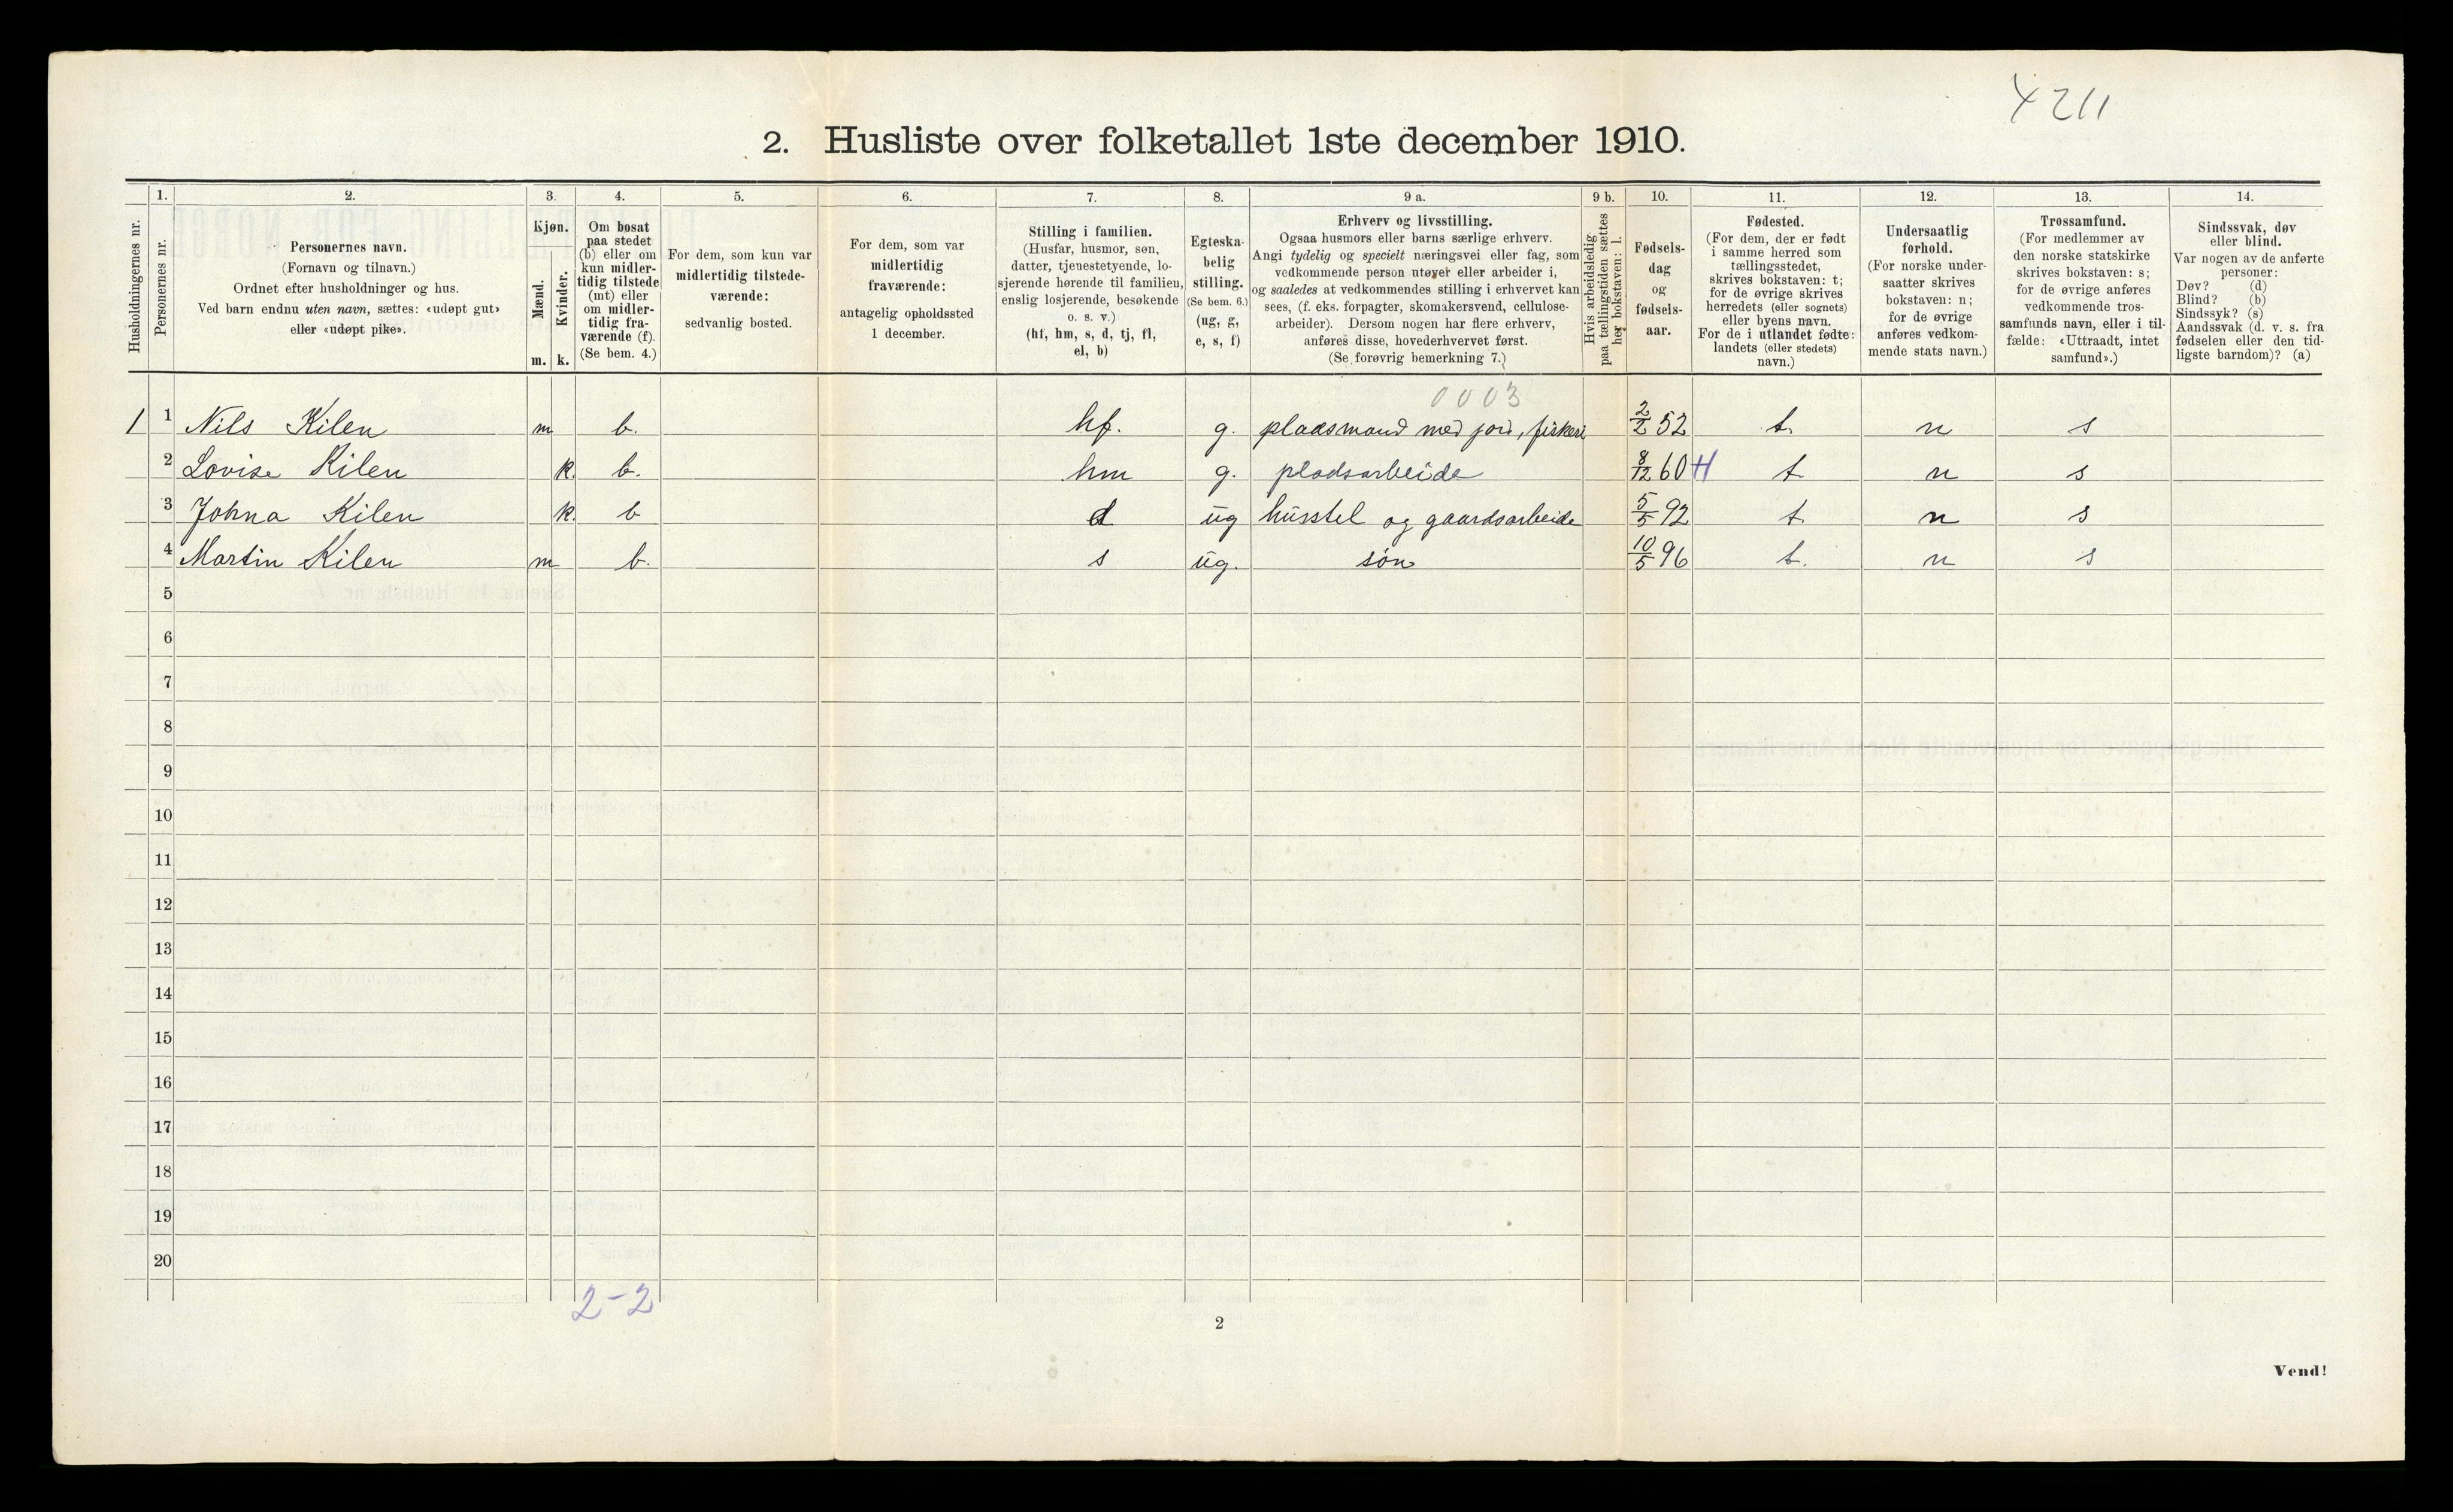 4211
2. Husliste over folketallet 1ste december 1910.
Husholdningernes nr.
1.
Personernes nr.
2.
Personernes navn.
(Fornavn og tilnavn.)
Ordnet efter husholdninger og hus.
Ved barn endnu uten navn, sættes: «udøpt gut»
eller «udøpt pike».
3.
Kjøn.
Mænd.
Kvinder.
m. k.
4.
Om bosat
paa stedet
(b) eller om
kun midler-
tidig tilstede
(mt) eller
om midler-
tidig fra-
værende (f).
(Se bem. 4.)
5.
For dem, som kun var
midlertidig tilstede-
værende:
sedvanlig bosted.
6.
For dem, som var
midlertidig
fraværende:
antagelig opholdssted
1 december.
7.
Stilling i familien.
(Husfar, husmor, søn,
datter, tjenestetyende, lo-
sjerende hørende til familien,
enslig losjerende, besøkende
o. s. v.)
(hf, hm, s, d, tj, fl,
el, b)
8.
Egteska-
belig
stilling.
(Se bem. 6.)
(ug, g,
e, s, f)
9 a.
Erhverv og livsstilling.
Ogsaa husmors eller barns særlige erhverv.
Angi tydelig og specielt næringsvei eller fag, som
vedkommende person utøver eller arbeider i,
og saaledes at vedkommendes stilling i erhvervet kan
sees, (f. eks. forpagter, skomakersvend, cellulose-
arbeider). Dersom nogen har flere erhverv,
anføres disse, hovederhvervet først.
(Se forøvrig bemerkning 7.)
9 b.
Hvis arbeidsledig
paa tællingstiden sættes
her bokstaven: l.
10.
Fødsels-
dag
og
fødsels-
aar.
11.
Fødested.
(For dem, der er født
i samme herred som
tællingsstedet,
skrives bokstaven: t;
for de øvrige skrives
herredets (eller sognets)
eller byens navn.
For de i utlandet fødte:
landets (eller stedets)
navn.)
12.
Undersaatlig
forhold.
(For norske under-
saatter skrives
bokstaven: n;
for de øvrige
anføres vedkom-
mende stats navn.)
13.
Trossamfund.
(For medlemmer av
den norske statskirke
skrives bokstaven: s;
for de øvrige anføres
vedkommende tros-
samfunds navn, eller i til-
fælde: «Uttraadt, intet
samfund».)
14.
Sindssvak, døv
eller blind.
Var nogen av de anførte
personer:
Døv? (d)
Blind? (b)
Sindssyk? (s)
Aandssvak (d. v. s. fra
fødselen eller den tid-
ligste barndom)? (a)
0003
1 1 Nils Kilen m b. hf. g. pladsmand med jord, fiskeri 2/2 52 t. n s
2 Lovise Kilen k. b. hm g. pladsarbeide 8/12 60 H t n s
3 Johna Kilen k. b d ug husstel og gaardsarbeide 5/5 92 t. n s
4 Martin Kilen m b. s ug. søn 10/5 96 t. n s
5
6
7
8
9
10
11
12
13
14
15
16
17
18
19
20
2-2
2
Vend!